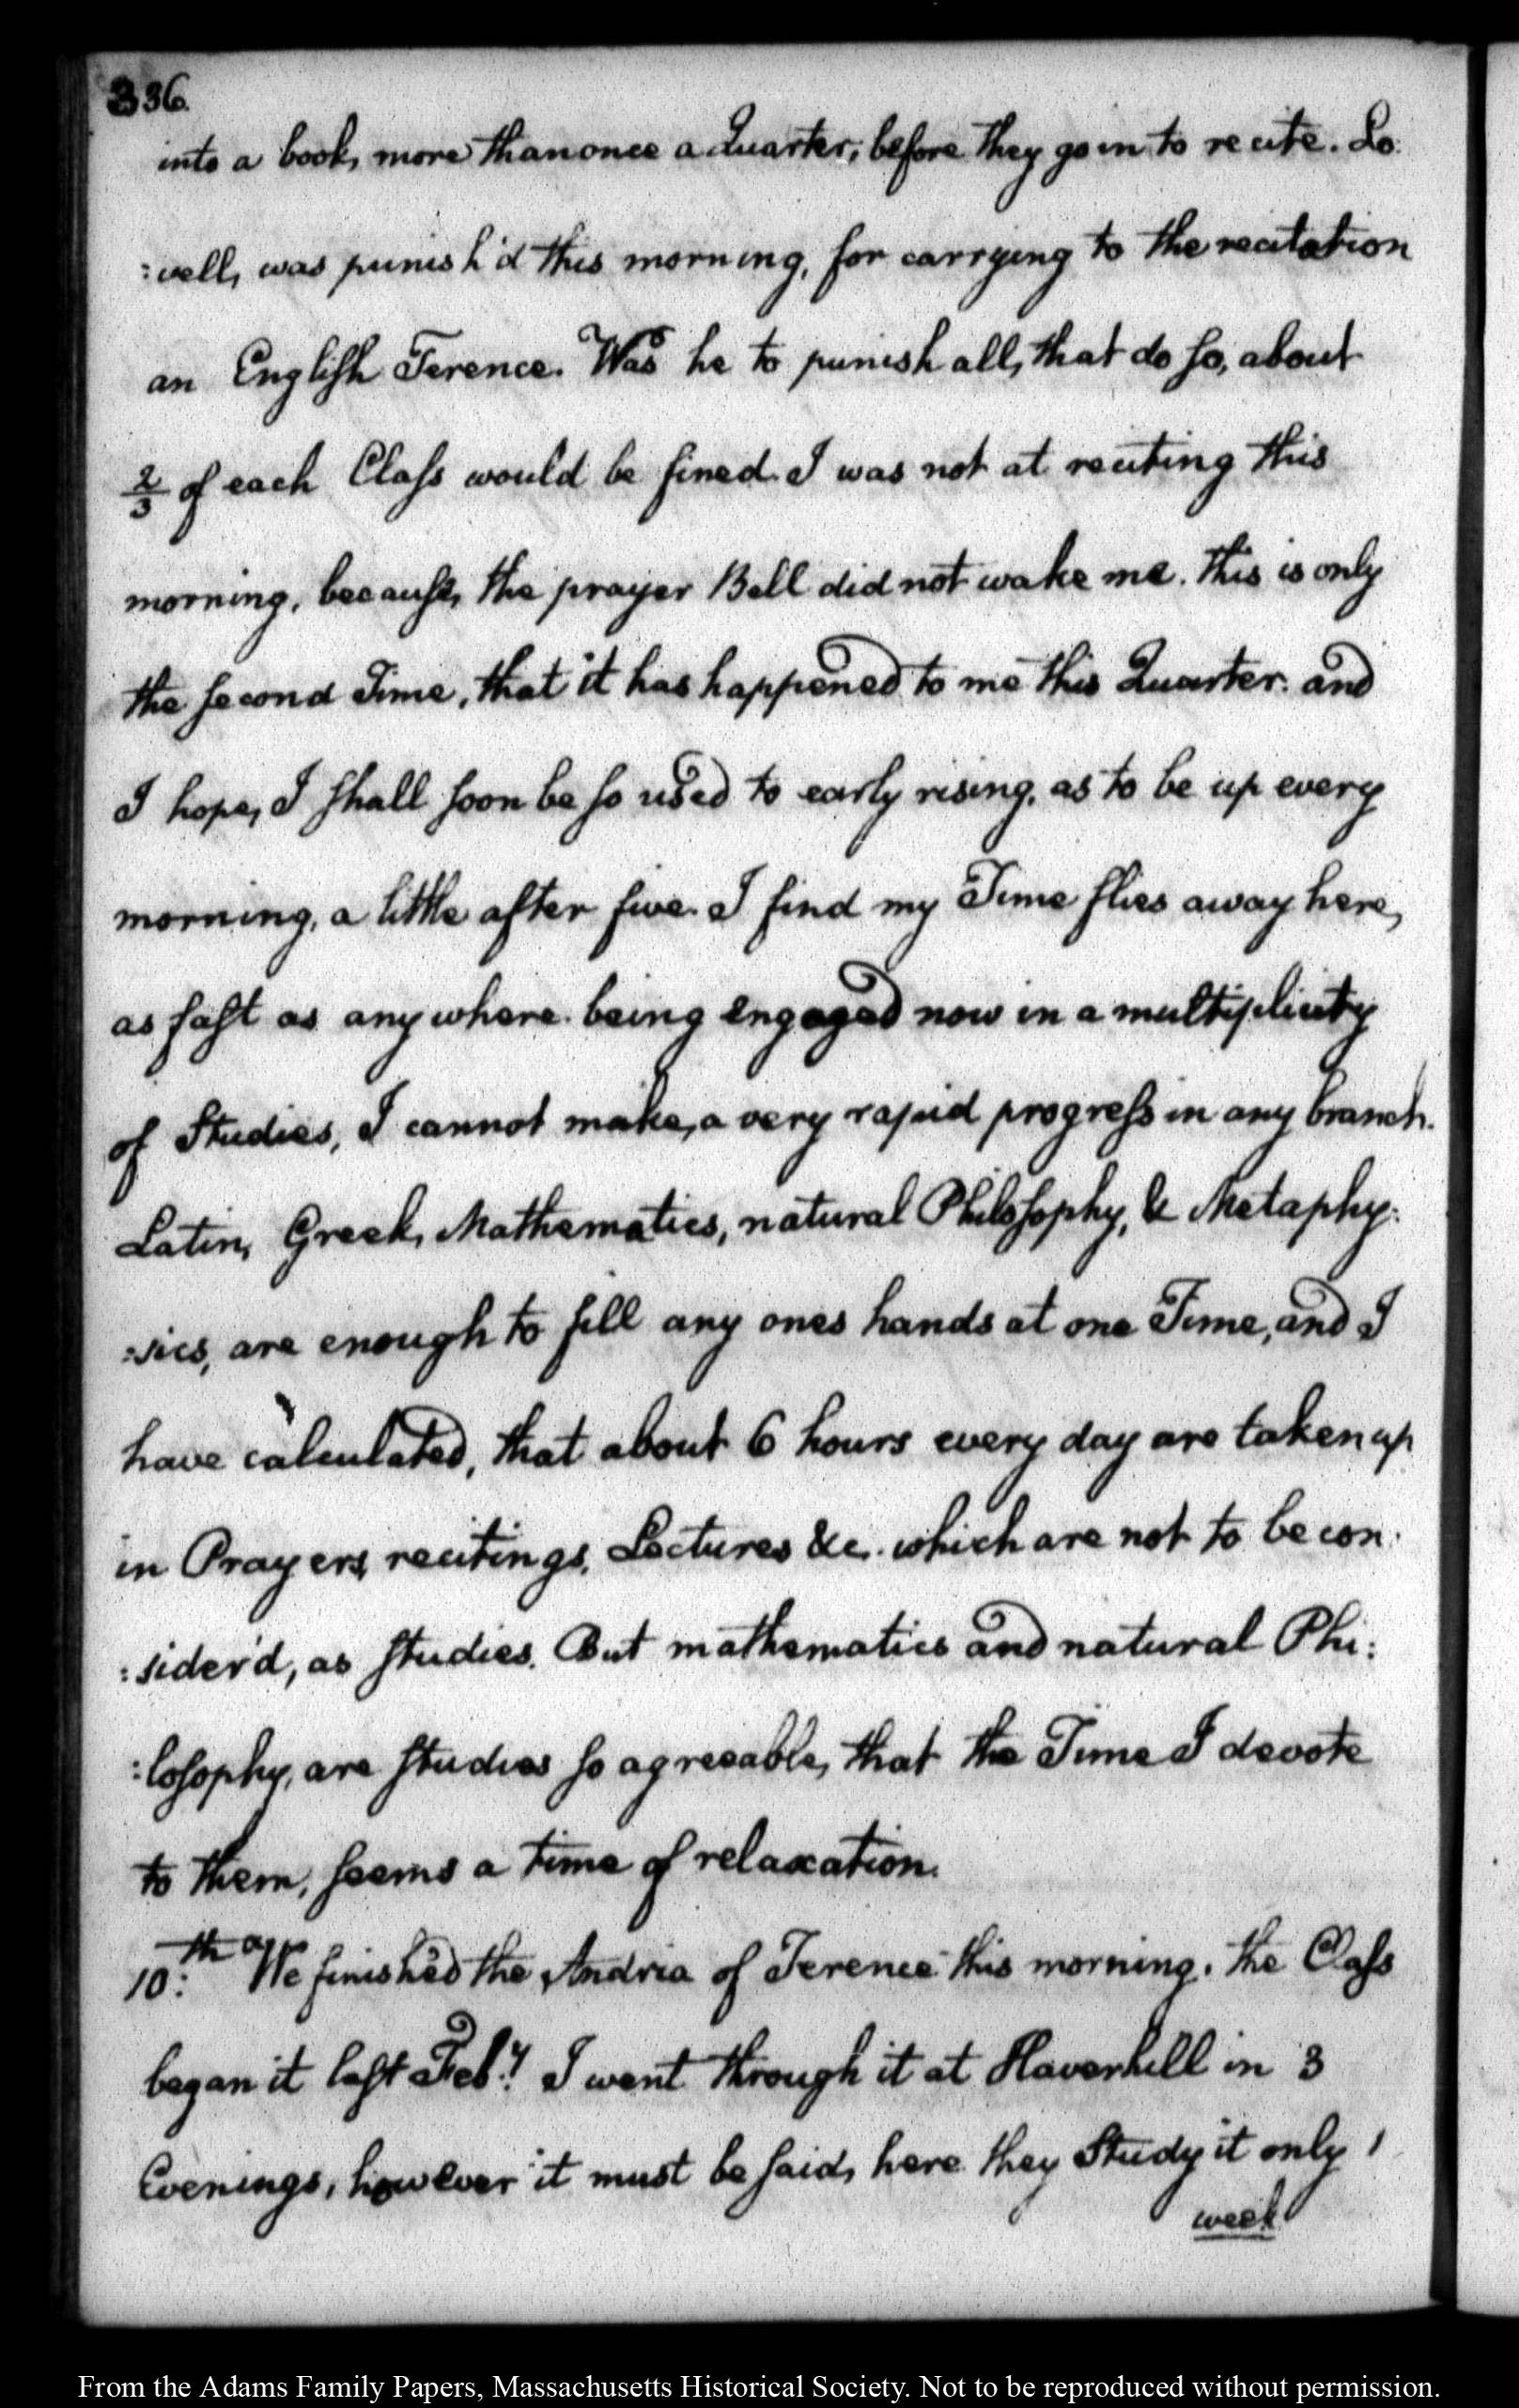 336.
into a book, more than once a Quarter, before they go in to recite. Lo:
:well, was punish'd this morning, for carrying to the recitation
an English Terence. Was he to punish all, that do so, about
2/3 of each Class would be fined. I was not at reciting this
morning, because, the prayer Bell did not wake me. this is only
the second Time, that it has happened to me this Quarter. and
I hope, I shall soon be so used to early rising, as to be up every
morning, a little after five. I find my Time flies away here,
as fast as any where. being engaged now in a multiplicity
of Studies, I cannot make, a very rapid progress in any branch.
Latin, Greek, Mathematics, natural Philosophy, & Metaphy:
:sics, are enough to fill any ones hands at one Time, and I
have calculated, that about 6 hours every day are taken up
in Prayers, recitings, Lectures &c. which are not to be con:
:sider'd, as studies. But mathematics and natural Phi:
:losophy, are studies so agreeable, that the Time I devote
to them, seems a time of relaxation.
10:th We finished the Andria of Terence this morning. the Class
began it last Feby. I went through it at Haverhill in 3
Evenings, however it must be said, here they Study it only 1
week
From the Adams Family Papers, Massachusetts Historical Society. Not to be reproduced without permission.